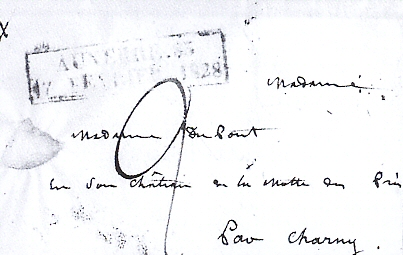 AUXERRE
17 FEVRIER 1828
Madame
Madame Du Pont
en son château de la Motte des Prés
Par Charny.